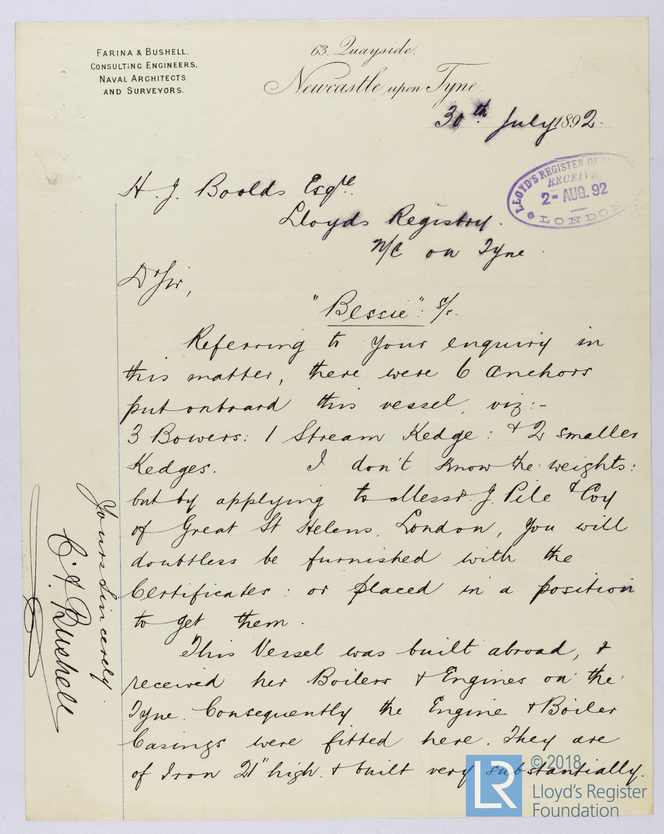 FARINA & BUSHELL,
CONSULTING ENGINEERS,
NAVAL ARCHITECTS
AND SURVEYORS.
63, Quayside,
Newcastle upon Tyne,
30th July 1892.
H. J. Boolds Esqre
Lloyds Registry.
N/C on Tyne.
LLOYD'S REGISTER OF
RECEIV
2- AUG. 92
LONDON
Dr Sir,
"Bessie". s/s.
Referring to your enquiry in
this matter, there were 6 Anchors
put onboard this vessel, viz:-
3 Bowers: 1 Stream Kedge: & 2 smaller
Kedges. I don't know the weights:
but by applying to Messrs. J. Pile & Coy
of Great St Helens, London, you will
doubtless be furnished with the
Certificates: or placed in a position
to get them.
This Vessel was built abroad, &
received her Boilers & Engines on the
Tyne. Consequently the Engine & Boiler
Casings were fitted here. They are
of Iron 21" high & built very substantially.
Yours sincerely.
C. A. Bushell
LR
© 2018
Lloyd's Register
Foundation